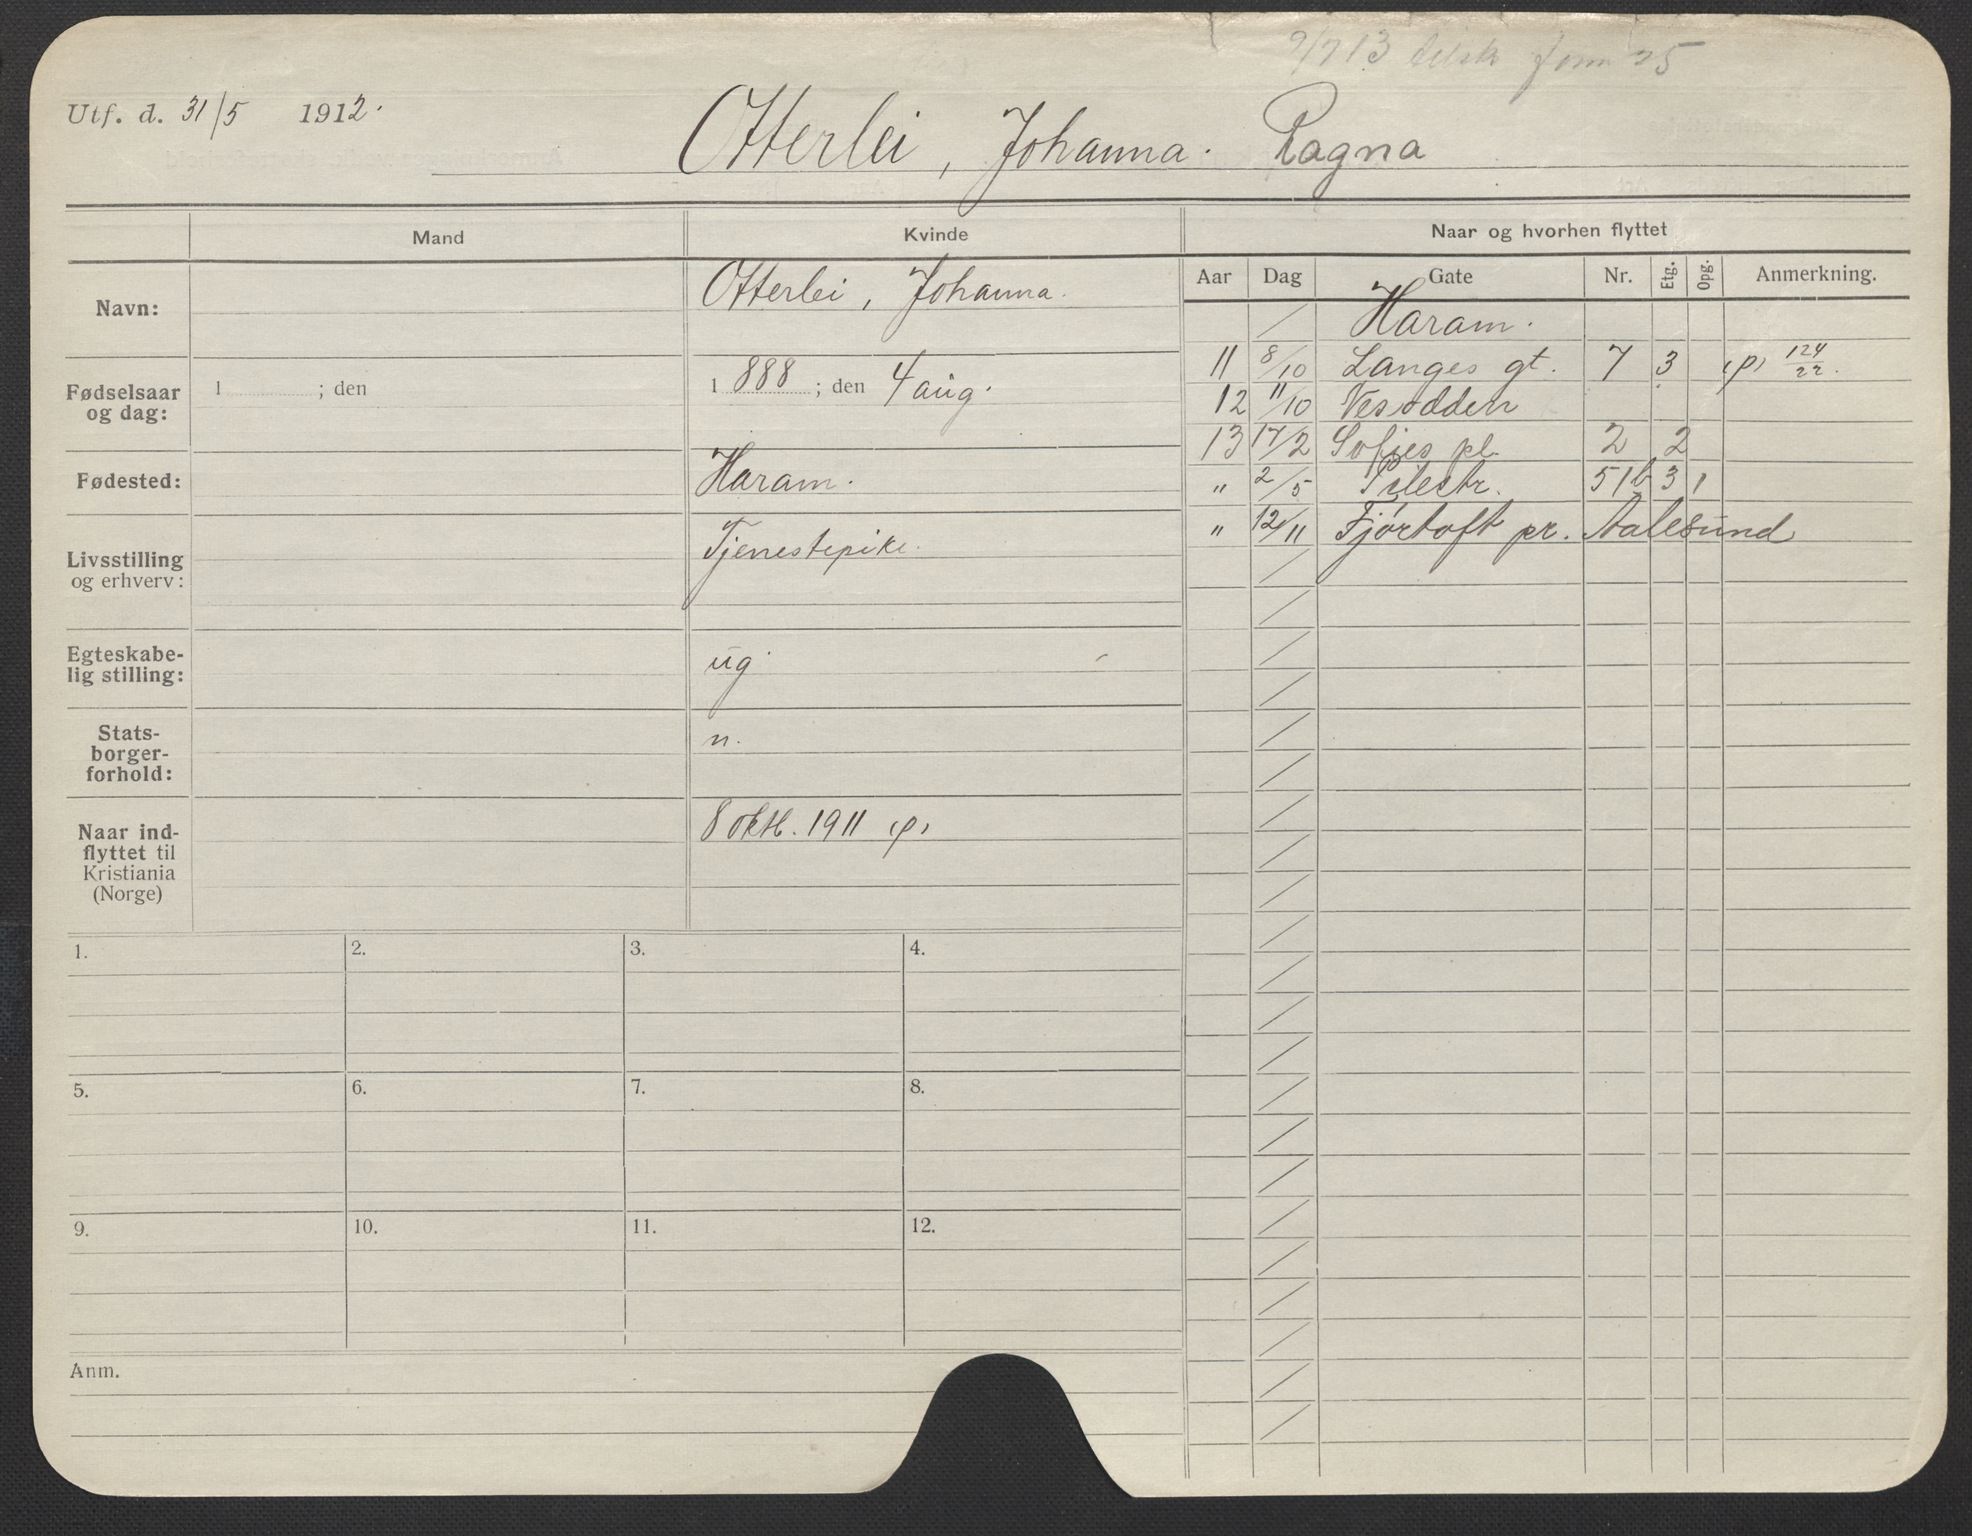 9/7 13
Utf. d. 31/5 1912.
Otterlei, Johanna. Ragna
Mand
Kvinde
Naar og hvorhen flyttet
Navn:
Otterlei, Johanna.
Fødselsaar og dag:
1 ; den
1 888 ; den 4 aug.
Fødested:
Haram.
Livsstilling og erhverv:
Tjenestepike.
Egteskabe-
lig stilling:
ug
Stats-
borger-
forhold:
n.
Naar ind-
flyttet til
Kristiania
(Norge)
8 okt. 1911 (p)
Aar Dag Gate Nr. Etg. Opg. Anmerkning.
/ Haram.
11 8/10 Langes gt. 7 3 (p) 124/22.
12 11/10 Nesodden
13 17/2 Sofies pl. 2 2
" 2/5 Pilestr. 51b 3 1
" 12/11 Fjørtoft pr. Aalesund
1. 2. 3. 4.
5. 6. 7. 8.
9. 10. 11. 12.
Anm.